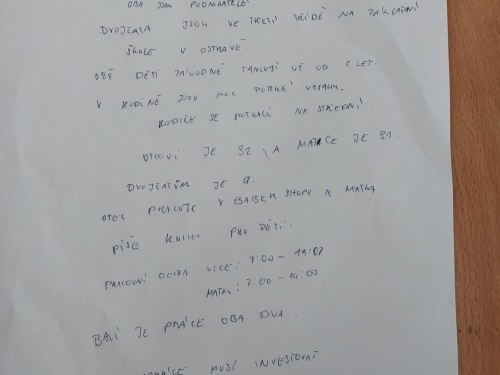 OBA JSOU PODNIKATELÉ.
DVOJČATA JSOU VE TŘETÍ TŘÍDĚ NA ZÁKLADNÍ
ŠKOLE V OSTRAVĚ.
OBĚ DĚTI ZÁVODNĚ TANCUJÍ UŽ OD 2 LET.
V RODINĚ JSOU MOC VZTAHY.
RODIČE SE POTKALI NA STŘEDNÍ.
OTCOVI JE 32 A MATCE JE 31.
DVOJČATŮM JE 9.
OTEC PRACUJE V SHOPU A MATKA
PÍŠE KNIHU PRO DĚTI.
PRACOVNÍ DOBA OTCE: 7:00 -
MATKA: 7:00 - 14:00
BAVÍ JE PRÁCE OBA DVA.
MUSÍ INVESTOVAT